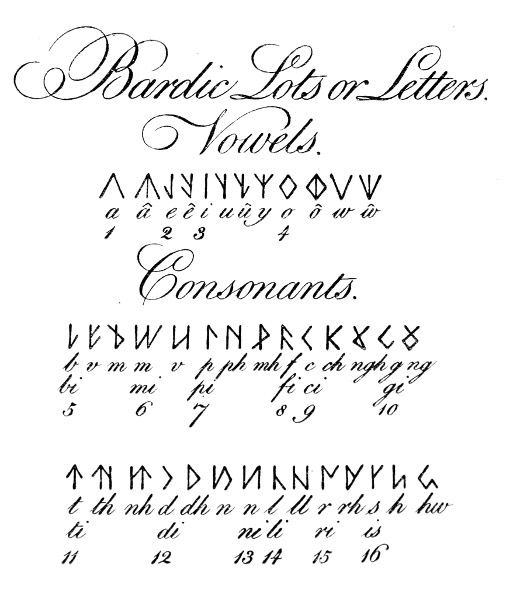 Bardic Lots or Letters.
Vowels.
a â e ê i u û y o ô w ŵ
1 2 3 4
Consonants.
b v m m v p ph mh f c ch ngh g ng
bi mi pi fi ci gi
5 6 7 8 9 10
t th nh d dh n n l ll r rh s h hw
ti di ni li ri is
11 12 13 14 15 16